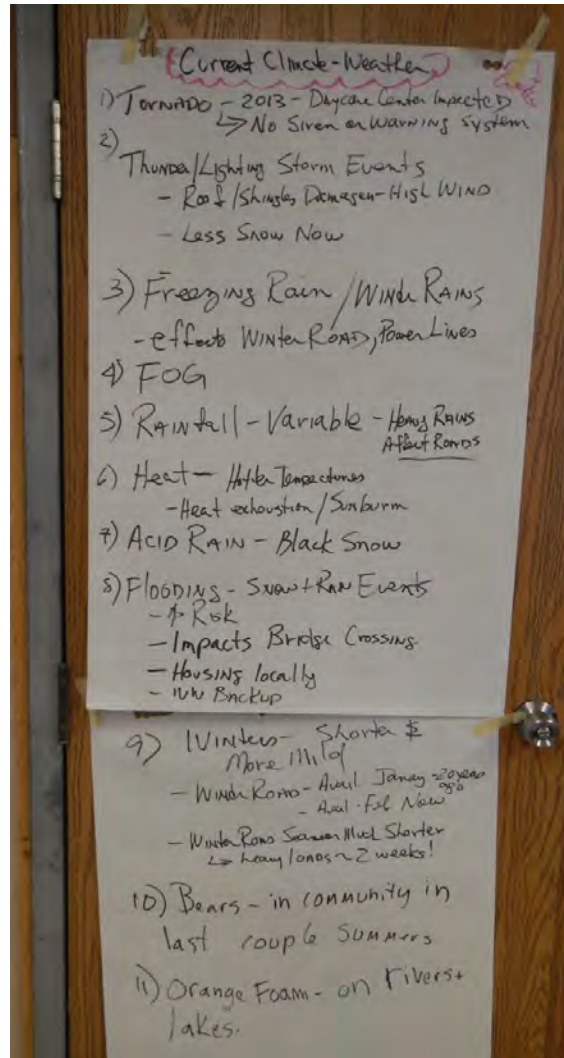 Current Climate-Weather
1) TORNADO - 2013 - Daycare Center Impacted
↳ No Siren or Warning System
2)
Thunder/Lighting Storm Events
- Roof/Shingles Damages-High WIND
- Less Snow Now
3) Freezing Rain / Winter RAINS
- effects Winter ROAD, Power Lines
4) FOG
5) RAINfall - Variable - Heavy RAINS
Affect ROADS
6) Heat - Hotter Temperatures
- Heat exhaustion/Sunburn
7) ACID RAIN - Black Snow
8) FLOODING - Snow + Rain Events
- ↑ Risk
- Impacts Bridge Crossing
- Housing locally
- Backup
9) Winters - Shorter &
More Mild
- Winter ROAD - Avail 20 years
ago
- Avail - Feb Now
- Winter Road Season Much Shorter
↳ heavy loads ~ 2 weeks!
10) Bears - in community in
last couple Summers
11) Orange Foam - on rivers +
lakes.